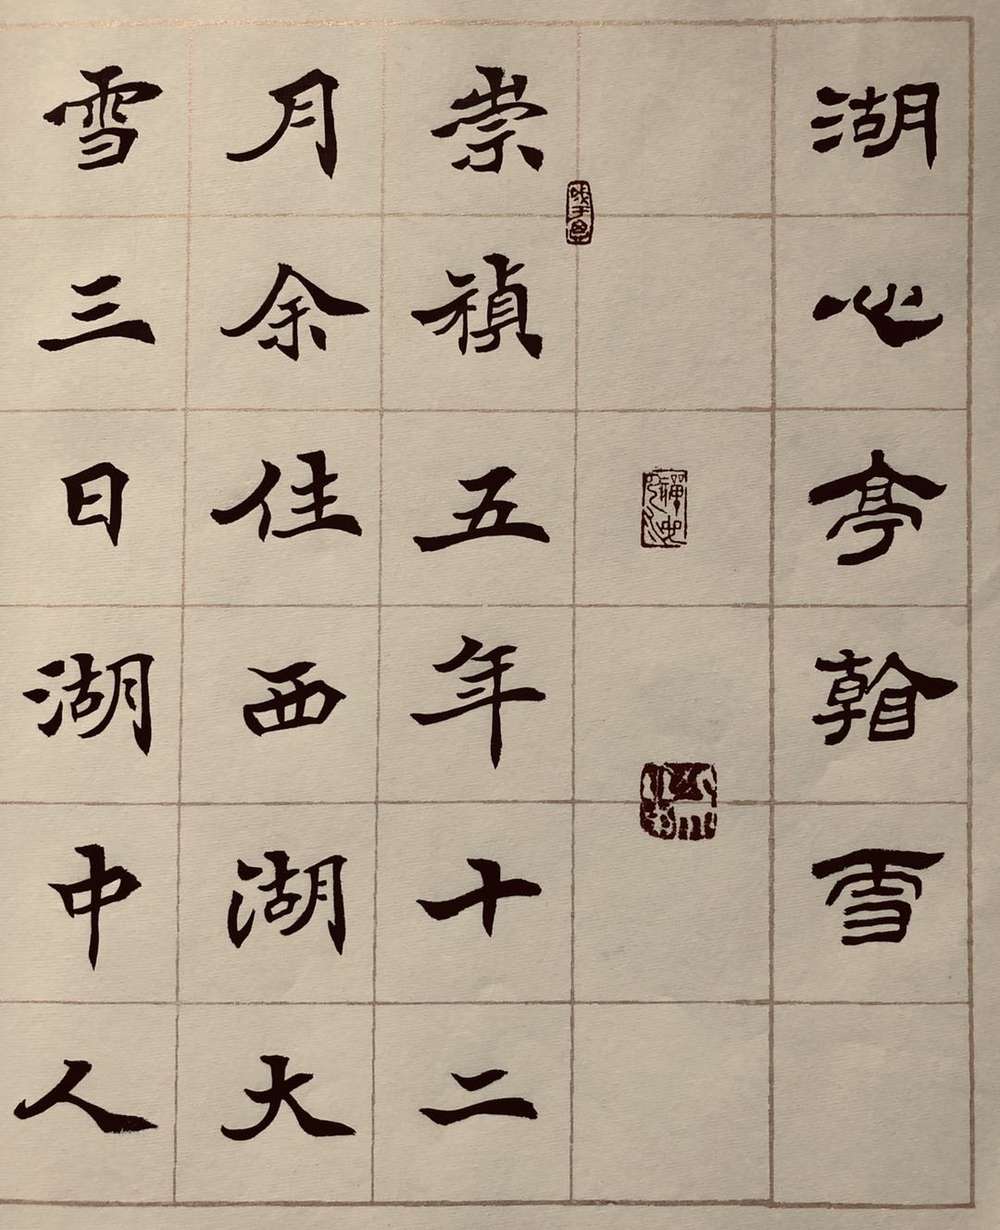 湖心亭看雪
崇禎五年十二
月余住西湖大
雪三日湖中人